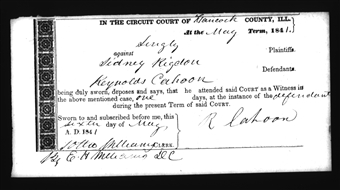 IN THE CIRCUIT COURT OF Hancock COUNTY, ILL.
At the May Term, 1841.
Singly
against Plaintiffs.
Sidney Rigdon
Defendants.
Reynolds Cahoon
being duly sworn, deposes and says, that he attended said COURT as a Witness in
the above mentioned case, one days, at the instance of the defendant
during the present Term of said COURT.
Sworn to and subscribed before me, this
sixth day of May R Cahoon
A. D. 1841
CLERK.
By E. H. Williams DC